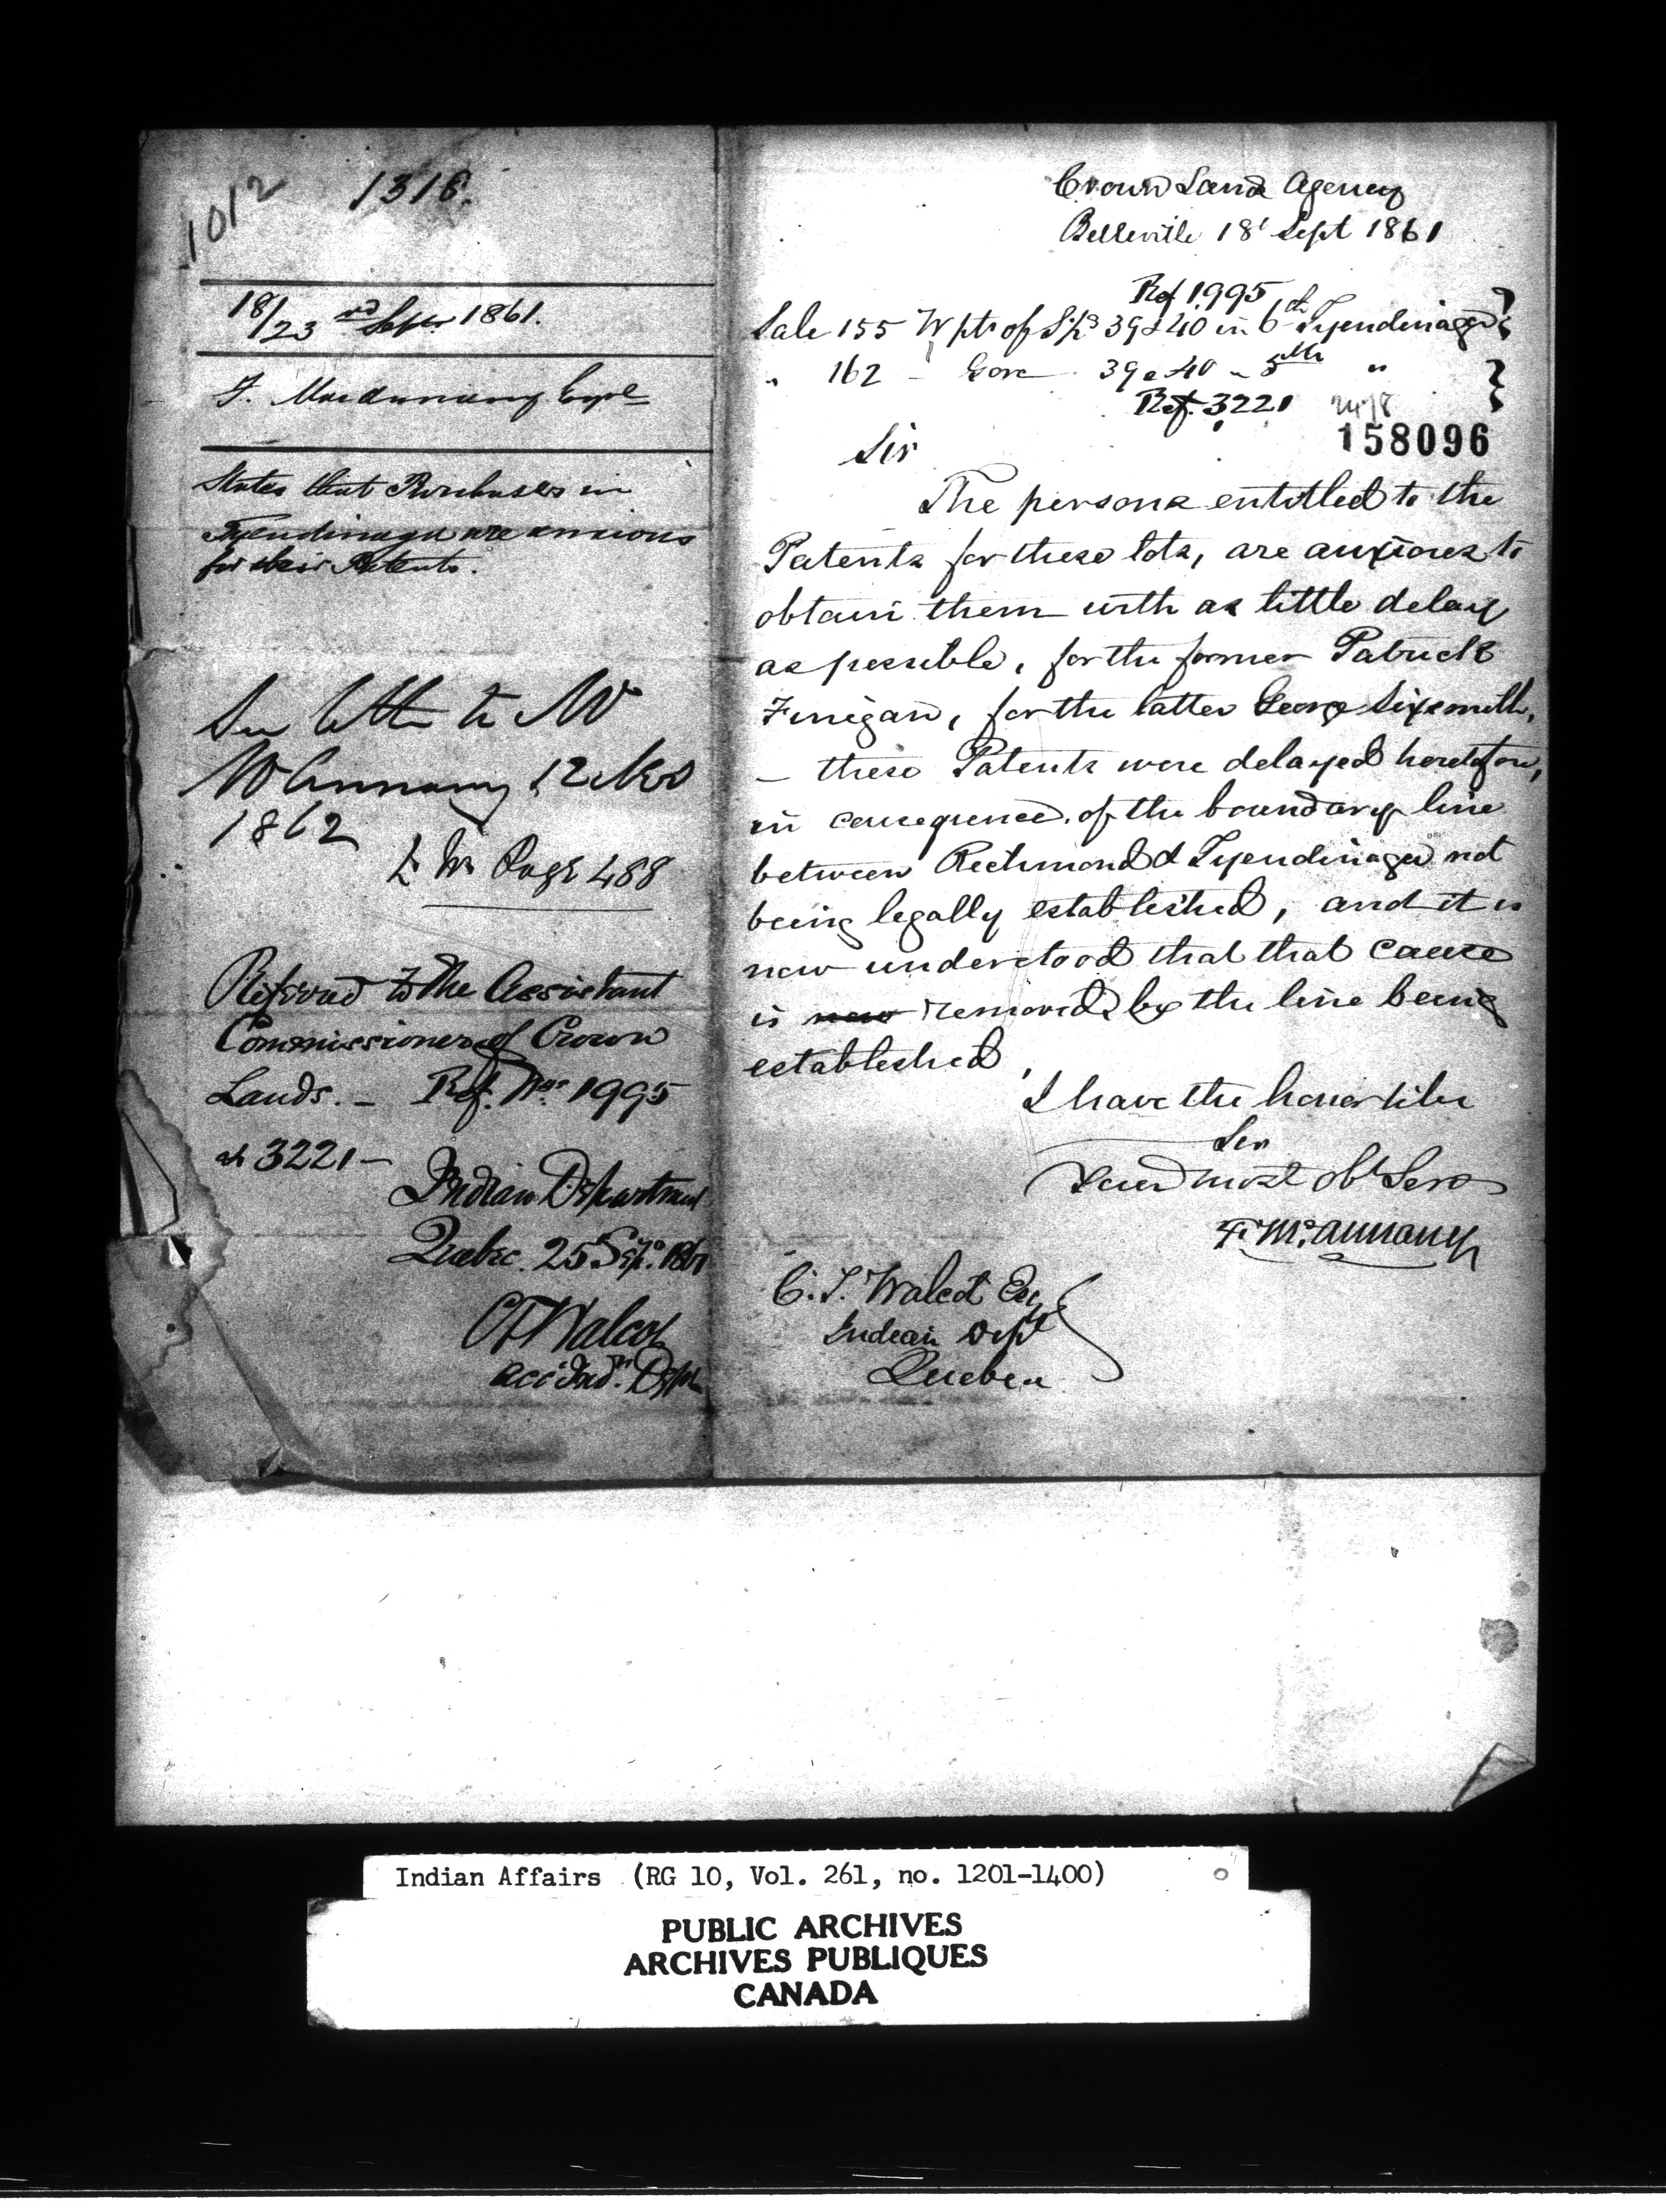 1012
1316.
18/23rd Sept. 1861.
F. Macannany Esqre
States that Purchasers in
Tyendinaga are anxious
for their Patents.
See letter to Mr
McAnnany 12 Nov
1862
L. Bk Page 488
Referred to the Assistant
Commissioner of Crown
Lands. — Ref. Nos. 1995
& 3221 —
Indian Department
Quebec. 25 Sept. 1861
C T Walcot
Acct Ind. Dept.
Crown Land Agency
Belleville 18t Sept 1861
Ref 1995
Sale 155 W pts of S½s 39 & 40 in 6th Tyendinaga
" 162 - Gore 39 & 40 " 5th "
Ref. 3221
158096
Sir
The persons entitled to the
Patents for these lots, are anxious to
obtain them with as little delay
as possible, for the former Patrick
Finigan, for the latter George Sixsmith,
— these Patents were delayed heretofore,
in consequence of the boundary line
between Richmond & Tyendinaga not
being legally established, and it is
now understood that that cause
is now removed by the line being
established,
I have the honor to be
Sir
Your most obt Serv
F. McAnnany
C. T. Walcot Esq
Indian Dept
Quebec
Indian Affairs (RG 10, Vol. 261, no. 1201-1400)
PUBLIC ARCHIVES
ARCHIVES PUBLIQUES
CANADA